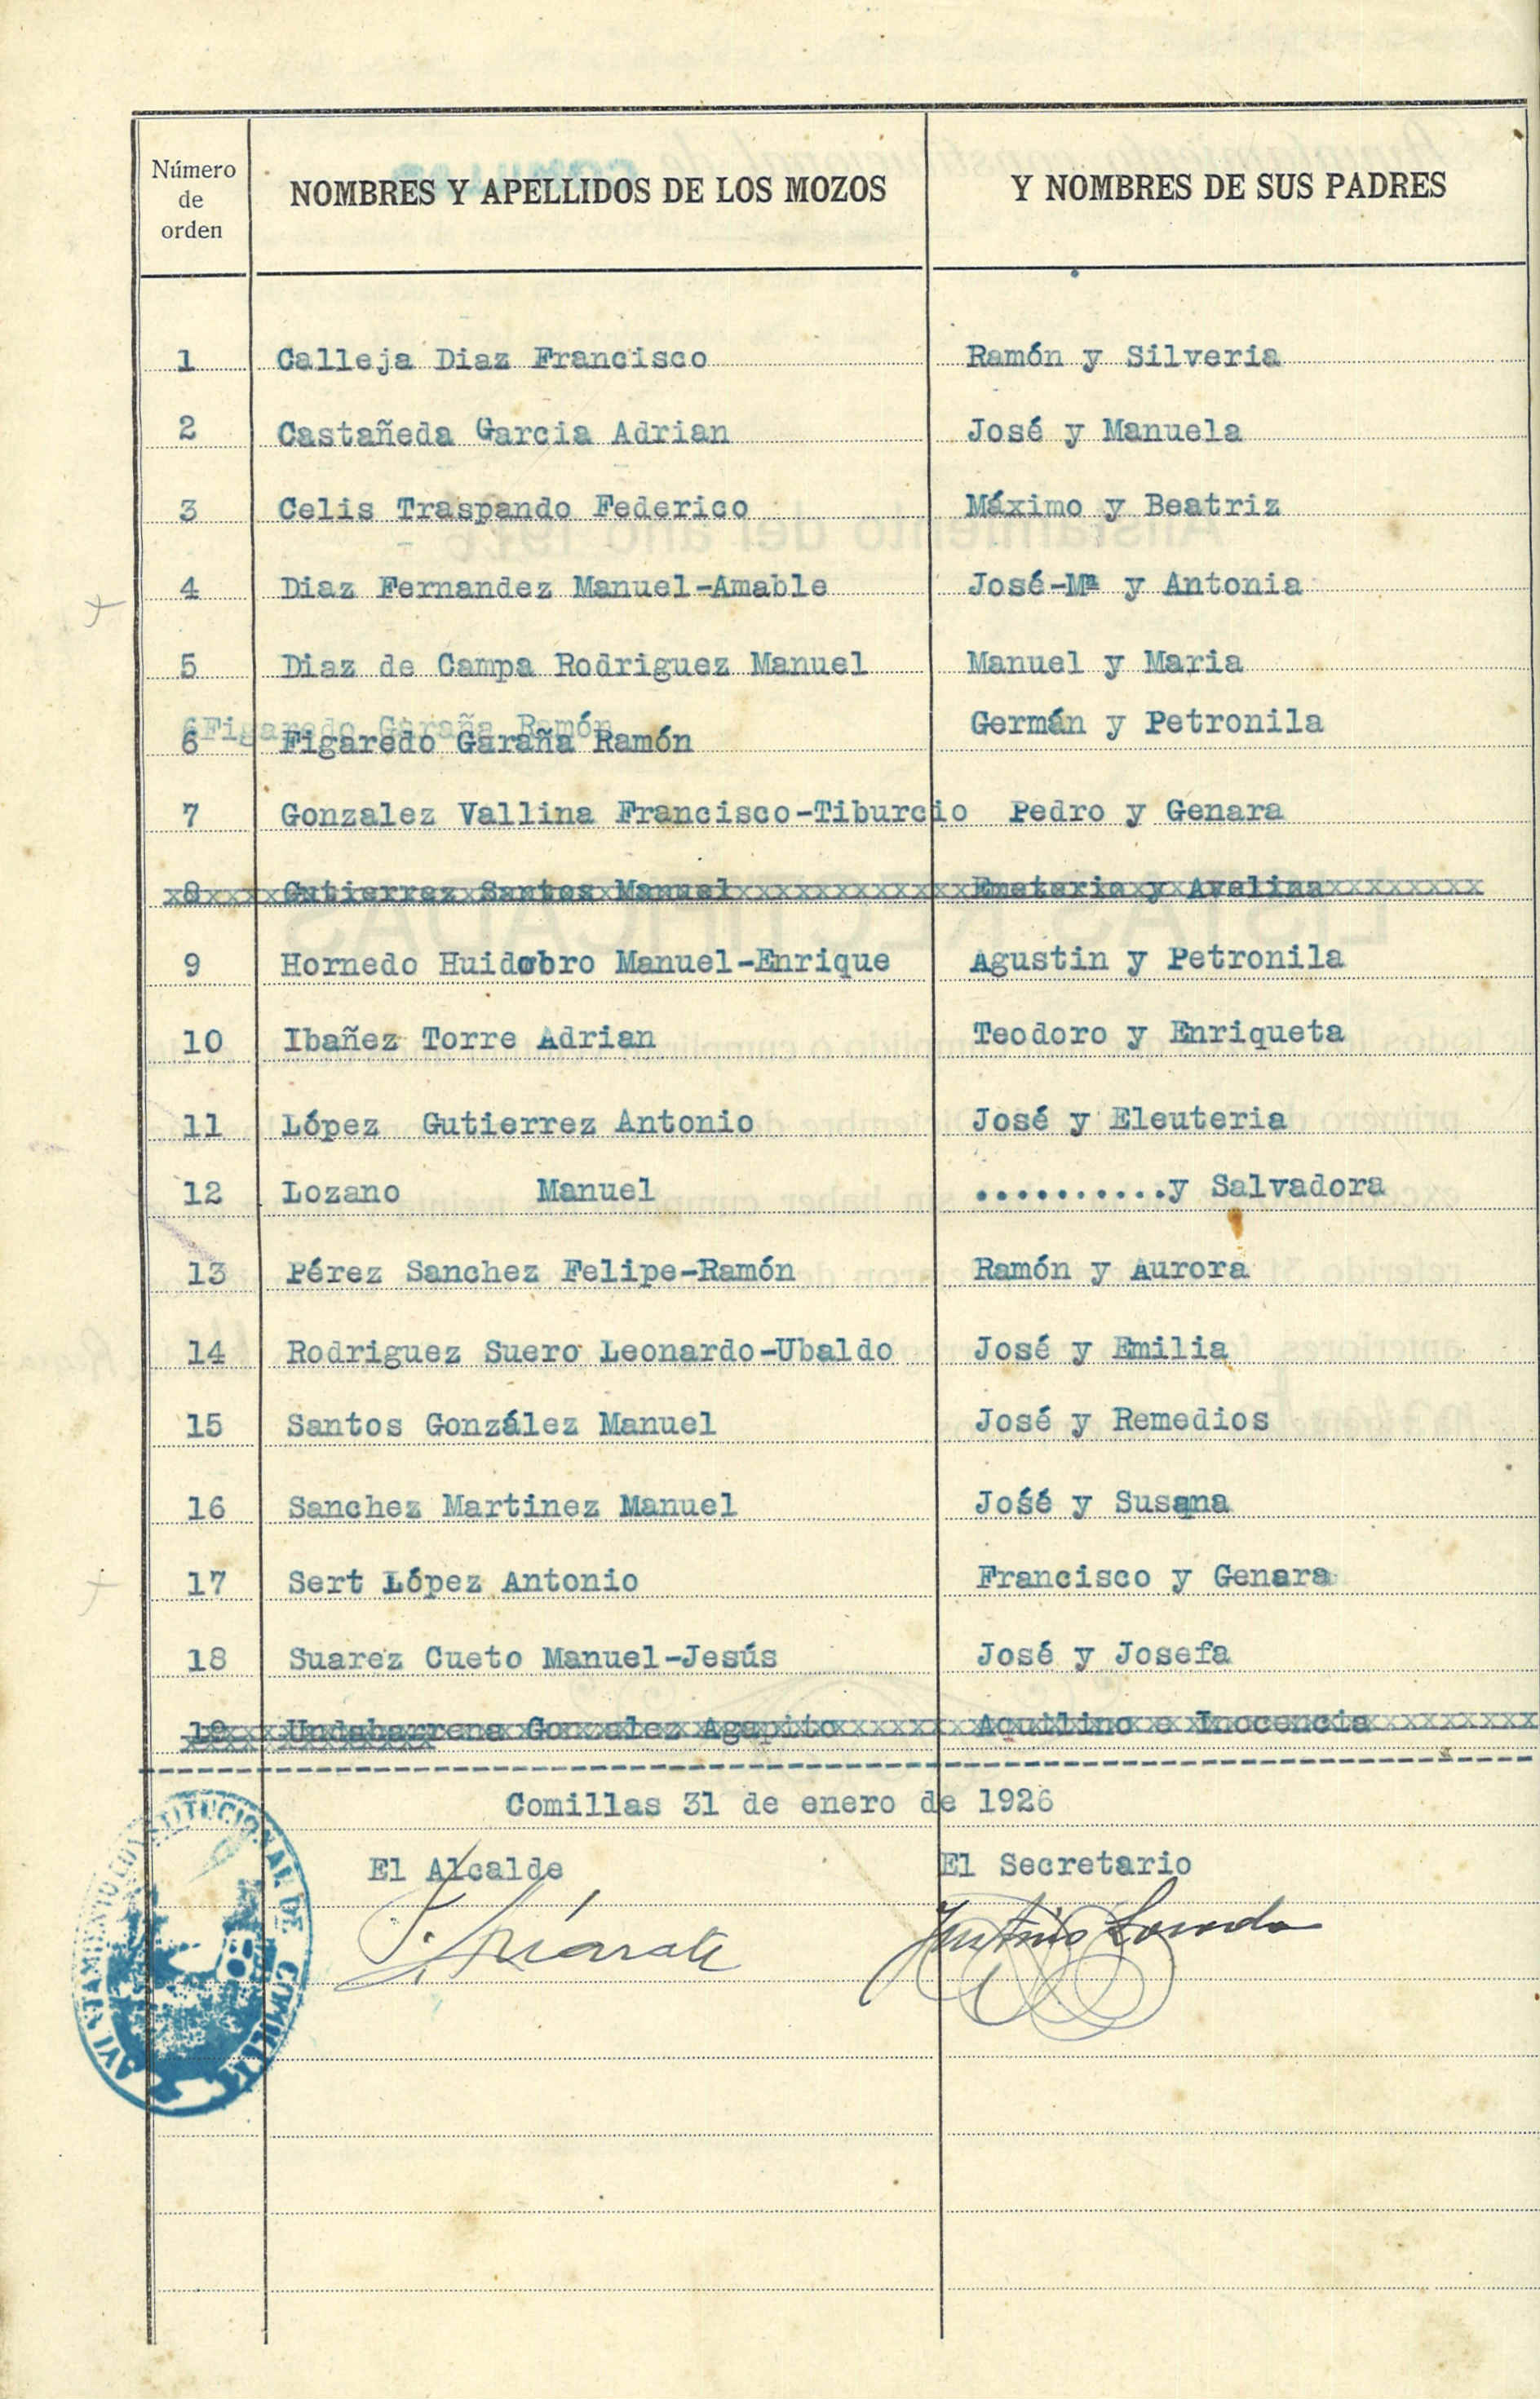 Número de orden
NOMBRES Y APELLIDOS DE LOS MOZOS
Y NOMBRES DE SUS PADRES
1 Calleja Diaz Francisco Ramón y Silveria
2 Castañeda Garcia Adrian José y Manuela
3 Celis Traspando Federico Máximo y Beatriz
4 Diaz Fernandez Manuel-Amable José-Mª y Antonia
5 Diaz de Campa Rodriguez Manuel Manuel y Maria
6 Figaredo Garaña Ramón
6 Figaredo Garaña Ramón Germán y Petronila
7 Gonzalez Vallina Francisco-Tiburcio Pedro y Genara
8 Gutierrez Santos Manuel Emeterio y Avelina
9 Hornedo Huidobro Manuel-Enrique Agustin y Petronila
10 Ibañez Torre Adrian Teodoro y Enriqueta
11 López Gutierrez Antonio José y Eleuteria
12 Lozano Manuel ..........y Salvadora
13 Pérez Sanchez Felipe-Ramón Ramón y Aurora
14 Rodriguez Suero Leonardo-Ubaldo José y Emilia
15 Santos González Manuel José y Remedios
16 Sanchez Martinez Manuel José y Susana
17 Sert López Antonio Francisco y Genara
18 Suarez Cueto Manuel-Jesús José y Josefa
19 Undabarrena Gonzalez Agapito Aquilino e Inocencia
Comillas 31 de enero de 1926
El Alcalde El Secretario
AYUNTAMIENTO CONSTITUCIONAL DE COMILLAS